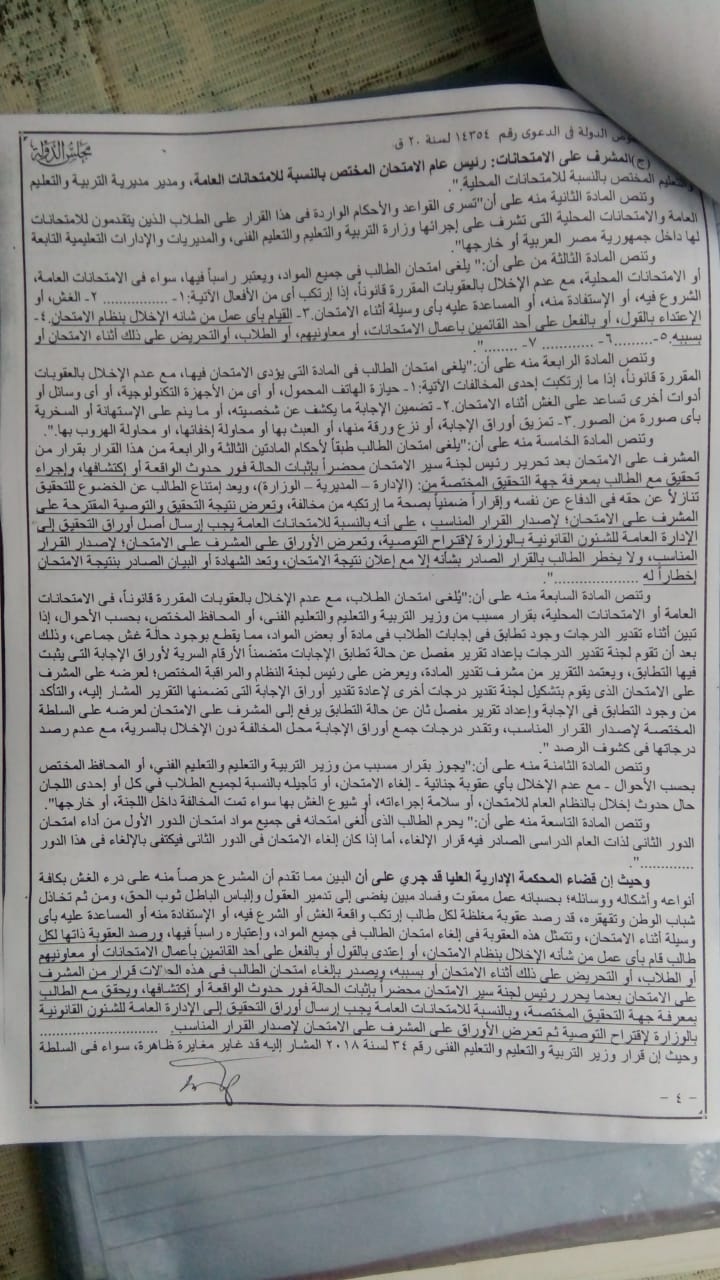 مجلس الدولة
الدولة فى الدعوى رقم ١٤٣٥٤ لسنة ٢٠ ق
(ج) المشرف على الامتحانات: رئيس عام الامتحان المختص بالنسبة للامتحانات العامة، ومدير مديرية التربية والتعليم
والتعليم المختص بالنسبة للامتحانات المحلية.".
وتنص المادة الثانية منه على أن"تسرى القواعد والأحكام الواردة فى هذا القرار على الطلاب الذين يتقدمون للامتحانات
العامة والامتحانات المحلية التى تشرف على إجرائها وزارة التربية والتعليم والتعليم الفنى، والمديريات والإدارات التعليمية التابعة
لها داخل جمهورية مصر العربية أو خارجها".
وتنص المادة الثالثة من على أن:" يلغى امتحان الطالب فى جميع المواد، ويعتبر راسباً فيها، سواء فى الامتحانات العامة،
أو الامتحانات المحلية، مع عدم الإخلال بالعقوبات المقررة قانوناً، إذا إرتكب أى من الأفعال الآتية:١- ............... ٢- الغش، أو
الشروع فيه، أو الإستفادة منه، أو المساعدة عليه بأى وسيلة أثناء الامتحان.٣- القيام بأى عمل من شانه الإخلال بنظام الامتحان.٤-
الإعتداء بالقول، أو بالفعل على أحد القائمين باعمال الامتحانات، أو معاونيهم، أو الطلاب، أوالتحريض على ذلك أثناء الامتحان أو
بسببه.٥-.........٦- ............ ٧- ........".
وتنص المادة الرابعة منه على أن:"يلغى امتحان الطالب فى المادة التى يؤدى الامتحان فيها، مع عدم الإخلال بالعقوبات
المقررة قانوناً، إذا ما إرتكبت إحدى المخالفات الآتية:١- حيازة الهاتف المحمول، أو أى من الأجهزة التكنولوجية، أو أى وسائل أو
أدوات أخرى تساعد على الغش أثناء الامتحان.٢- تضمين الإجابة ما يكشف عن شخصيته، أو ما ينم على الإستهانة أو السخرية
بأى صورة من الصور.٣- تمزيق أوراق الإجابة، أو نزع ورقة منها، أو العبث بها أو محاولة إخفائها، أو محاولة الهروب بها.".
وتنص المادة الخامسة منه على أن:"يلغى امتحان الطالب طبقاً لأحكام المادتين الثالثة والرابعة من هذا القرار بقرار من
المشرف على الامتحان بعد تحرير رئيس لجنة سير الامتحان محضراً بإثبات الحالة فور حدوث الواقعة أو إكتشافها، وإجراء
تحقيق مع الطالب بمعرفة جهة التحقيق المختصة من: (الإدارة – المديرية – الوزارة)، ويعد إمتناع الطالب عن الخضوع للتحقيق
تنازلاً عن حقه فى الدفاع عن نفسه وإقراراً ضمنياً بصحة ما إرتكبه من مخالفة، وتعرض نتيجة التحقيق والتوصية المقترحة على
المشرف على الامتحان؛ لإصدار القرار المناسب ، على أنه بالنسبة للامتحانات العامة يجب إرسال أصل أوراق التحقيق إلى
الإدارة العامة للشئون القانونية بالوزارة لإقتراح التوصية، وتعرض الأوراق على المشرف على الامتحان؛ لإصدار القرار
المناسب، ولا يخطر الطالب بالقرار الصادر بشأنه إلا مع إعلان نتيجة الامتحان، وتعد الشهادة أو البيان الصادر بنتيجة الامتحان
إخطاراً له ...................".
وتنص المادة السابعة منه على أن:"يُلغى امتحان الطلاب، مع عدم الإخلال بالعقوبات المقررة قانوناً، فى الامتحانات
العامة أو الامتحانات المحلية، بقرار مسبب من وزير التربية والتعليم والتعليم الفنى، أو المحافظ المختص، بحسب الأحوال، إذا
تبين أثناء تقدير الدرجات وجود تطابق فى إجابات الطلاب فى مادة أو بعض المواد، مما يقطع بوجود حالة غش جماعى، وذلك
بعد أن تقوم لجنة تقدير الدرجات بإعداد تقرير مفصل عن حالة تطابق الإجابات متضمناً الأرقام السرية لأوراق الإجابة التى يثبت
فيها التطابق، ويعتمد التقرير من مشرف تقدير المادة، ويعرض على رئيس لجنة النظام والمراقبة المختص؛ لعرضه على المشرف
على الامتحان الذى يقوم بتشكيل لجنة تقدير درجات أخرى لإعادة تقدير أوراق الإجابة التى تضمنها التقرير المشار إليه، والتأكد
من وجود التطابق فى الإجابة وإعداد تقرير مفصل ثان عن حالة التطابق يرفع إلى المشرف على الامتحان لعرضه على السلطة
المختصة لإصدار القرار المناسب، وتقدر درجات جمع أوراق الإجابة محل المخالفة دون الإخلال بالسرية، مع عدم رصد
درجاتها فى كشوف الرصد ".
وتنص المادة الثامنة منه على أن:"يجوز بقرار مسبب من وزير التربية والتعليم والتعليم الفني، أو المحافظ المختص
بحسب الأحوال - مع عدم الإخلال بأي عقوبة جنائية - إلغاء الامتحان، أو تأجيله بالنسبة لجميع الطلاب في كل أو إحدى اللجان
حال حدوث إخلال بالنظام العام للامتحان، أو سلامة إجراءاته، أو شيوع الغش بها سواء تمت المخالفة داخل اللجنة، أو خارجها".
وتنص المادة التاسعة منه على أن:" يحرم الطالب الذى ألغى امتحانه فى جميع مواد امتحان الدور الأول من أداء امتحان
الدور الثانى لذات العام الدراسى الصادر فيه قرار الإلغاء، أما إذا كان إلغاء الامتحان فى الدور الثانى فيكتفى بالإلغاء فى هذا الدور
.............".
وحيث إن قضاء المحكمة الإدارية العليا قد جري على أن البين مما تقدم أن المشرع حرصاً منه على درء الغش بكافة
أنواعه وأشكاله ووسائله؛ بحسبانه عمل ممقوت وفساد مبين يفضى إلى تدمير العقول وإلباس الباطل ثوب الحق، ومن ثم تخاذل
شباب الوطن وتقهقره، قد رصد عقوبة مغلظة لكل طالب إرتكب واقعة الغش أو الشرع فيه، أو الإستفادة منه أو المساعدة عليه بأى
وسيلة أثناء الامتحان، وتتمثل هذه العقوبة فى إلغاء امتحان الطالب فى جميع المواد، وإعتباره راسباً فيها، ورصد العقوبة ذاتها لكل
طالب قام بأى عمل من شأنه الإخلال بنظام الامتحان، أو إعتدى بالقول أو بالفعل على أحد القائمين بأعمال الامتحانات أو معاونيهم
أو الطلاب، أو التحريض على ذلك أثناء الامتحان أو بسببه، ويصدر بإلغاء امتحان الطالب فى هذه الحالات قرار من المشرف
على الامتحان بعدما يحرر رئيس لجنة سير الامتحان محضراً بإثبات الحالة فور حدوث الواقعة أو إكتشافها، ويحقق مع الطالب
بمعرفة جهة التحقيق المختصة، وبالنسبة للامتحانات العامة يجب إرسال أوراق التحقيق إلى الإدارة العامة للشئون القانونية
بالوزارة لإقتراح التوصية ثم تعرض الأوراق على المشرف على الامتحان لإصدار القرار المناسب. ...............................
وحيث إن قرار وزير التربية والتعليم والتعليم الفنى رقم ٣٤ لسنة ٢٠١٨ المشار إليه قد غاير مغايرة ظاهرة، سواء فى السلطة
- ٤ -